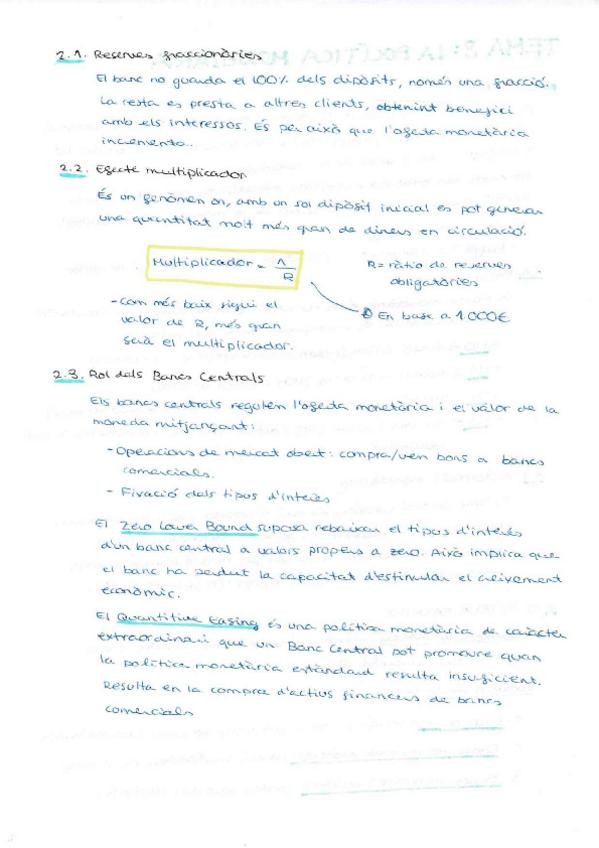 2.1. Reserves fraccionàries
El banc no guarda el 100% dels dipòsits, només una fracció.
La resta es presta a altres clients, obtenint benefici
amb els interessos. És per això que l'oferta monetària
incrementa.
2.2. Efecte multiplicador
És un fenòmen on, amb un sol dipòsit inicial es pot generar
una quantitat molt més gran de diners en circulació.
Multiplicador = 1/R
R = ràtio de reserves
obligatòries
En base a 1000€
- Com més baix sigui el
valor de R, més gran
serà el multiplicador.
2.3. Rol dels Bancs Centrals
Els bancs centrals regulen l'oferta monetària i el valor de la
moneda mitjançant:
- Operacions de mercat obert: compra/ven bons a bancs
comercials.
- Fixació dels tipus d'interès
El Zero Lower Bound suposa rebaixar el tipus d'interès
d'un banc central a valors propers a zero. Això implica que
el banc ha perdut la capacitat d'estimular el creixement
econòmic.
El Quantitive Easing és una política monetària de caràcter
extraordinari que un Banc Central pot promoure quan
la política monetària estàndard resulta insuficient.
Resulta en la compra d'actius financers de bancs
comercials